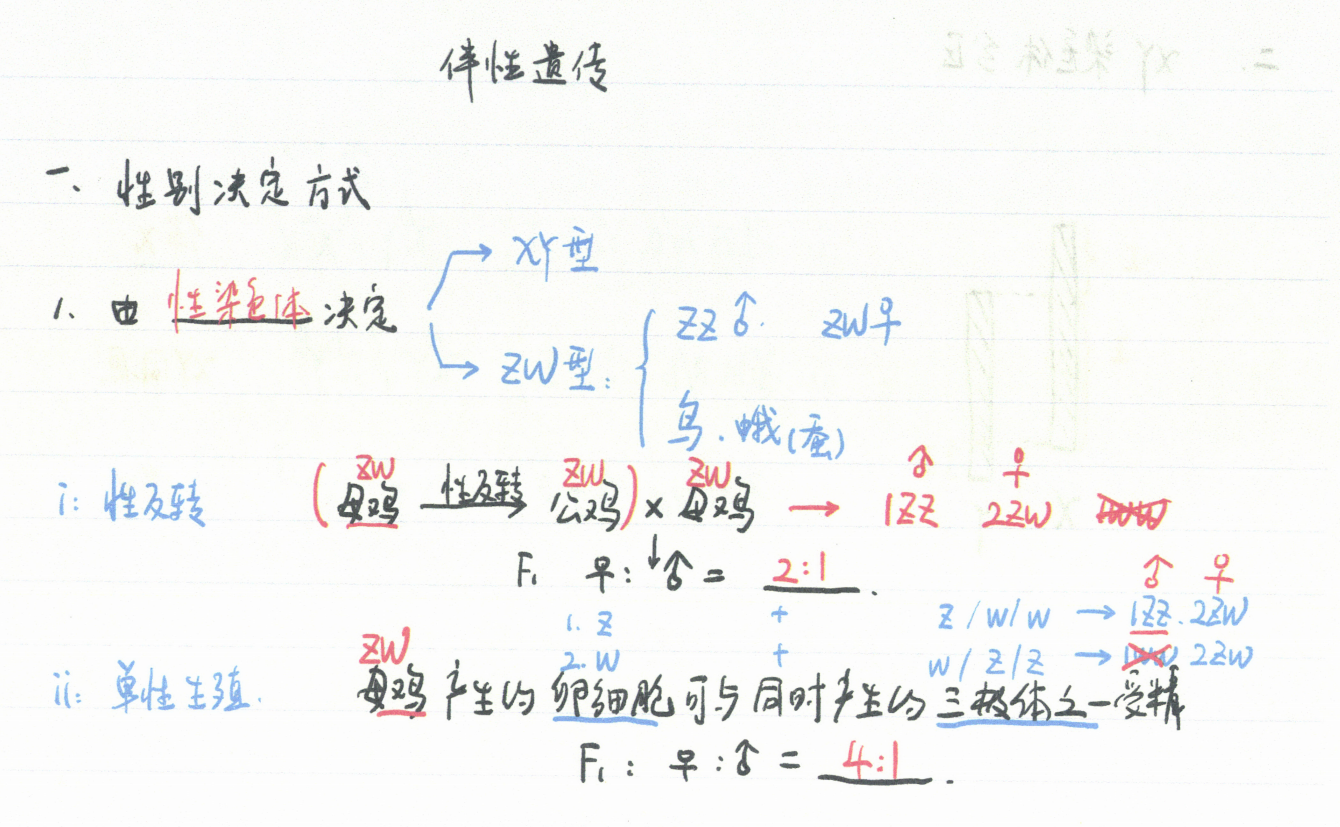 伴性遗传
一、性别决定方式
XY型
1. 由 性染色体 决定
ZZ♂. ZW♀
ZW型:
鸟.蛾(蚕)
ZW ZW ZW ♂ ♀
i: 性反转 (母鸡 性反转→ 公鸡) × 母鸡 → 1ZZ 2ZW
↓
F₁ ♀:♂ = 2:1.
♂ ♀
1. Z + Z/W/W → 1ZZ. 2ZW
ZW 2. W + W/Z/Z → WW 2ZW
ii: 单性生殖. 母鸡产生的卵细胞可与同时产生的三极体之一受精
F₁: ♀:♂ = 4:1.